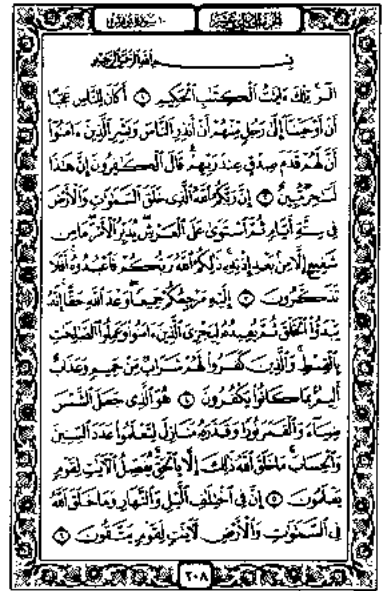 الجزء الحادي عشر
١٠ سورة يونس
بسم الله الرحمن الرحيم
الٓر تِلْكَ ءَايَٰتُ ٱلْكِتَٰبِ ٱلْحَكِيمِ ١ أَكَانَ لِلنَّاسِ عَجَبًا
أَنْ أَوْحَيْنَآ إِلَىٰ رَجُلٍ مِّنْهُمْ أَنْ أَنذِرِ ٱلنَّاسَ وَبَشِّرِ ٱلَّذِينَ ءَامَنُوٓا۟
أَنَّ لَهُمْ قَدَمَ صِدْقٍ عِندَ رَبِّهِمْ قَالَ ٱلْكَٰفِرُونَ إِنَّ هَٰذَا
لَسَٰحِرٌ مُّبِينٌ ٢ إِنَّ رَبَّكُمُ ٱللَّهُ ٱلَّذِى خَلَقَ ٱلسَّمَٰوَٰتِ وَٱلْأَرْضَ
فِى سِتَّةِ أَيَّامٍ ثُمَّ ٱسْتَوَىٰ عَلَى ٱلْعَرْشِ يُدَبِّرُ ٱلْأَمْرَ مَا مِن
شَفِيعٍ إِلَّا مِنۢ بَعْدِ إِذْنِهِۦ ذَٰلِكُمُ ٱللَّهُ رَبُّكُمْ فَٱعْبُدُوهُ أَفَلَا
تَذَكَّرُونَ ٣ إِلَيْهِ مَرْجِعُكُمْ جَمِيعًا وَعْدَ ٱللَّهِ حَقًّا إِنَّهُۥ
يَبْدَؤُا۟ ٱلْخَلْقَ ثُمَّ يُعِيدُهُۥ لِيَجْزِىَ ٱلَّذِينَ ءَامَنُوا۟ وَعَمِلُوا۟ ٱلصَّٰلِحَٰتِ
بِٱلْقِسْطِ وَٱلَّذِينَ كَفَرُوا۟ لَهُمْ شَرَابٌ مِّنْ حَمِيمٍ وَعَذَابٌ
أَلِيمٌۢ بِمَا كَانُوا۟ يَكْفُرُونَ ٤ هُوَ ٱلَّذِى جَعَلَ ٱلشَّمْسَ
ضِيَآءً وَٱلْقَمَرَ نُورًا وَقَدَّرَهُۥ مَنَازِلَ لِتَعْلَمُوا۟ عَدَدَ ٱلسِّنِينَ
وَٱلْحِسَابَ مَا خَلَقَ ٱللَّهُ ذَٰلِكَ إِلَّا بِٱلْحَقِّ يُفَصِّلُ ٱلْءَايَٰتِ لِقَوْمٍ
يَعْلَمُونَ ٥ إِنَّ فِى ٱخْتِلَٰفِ ٱلَّيْلِ وَٱلنَّهَارِ وَمَا خَلَقَ ٱللَّهُ
فِى ٱلسَّمَٰوَٰتِ وَٱلْأَرْضِ لَءَايَٰتٍ لِّقَوْمٍ يَتَّقُونَ ٦
٢٠٨